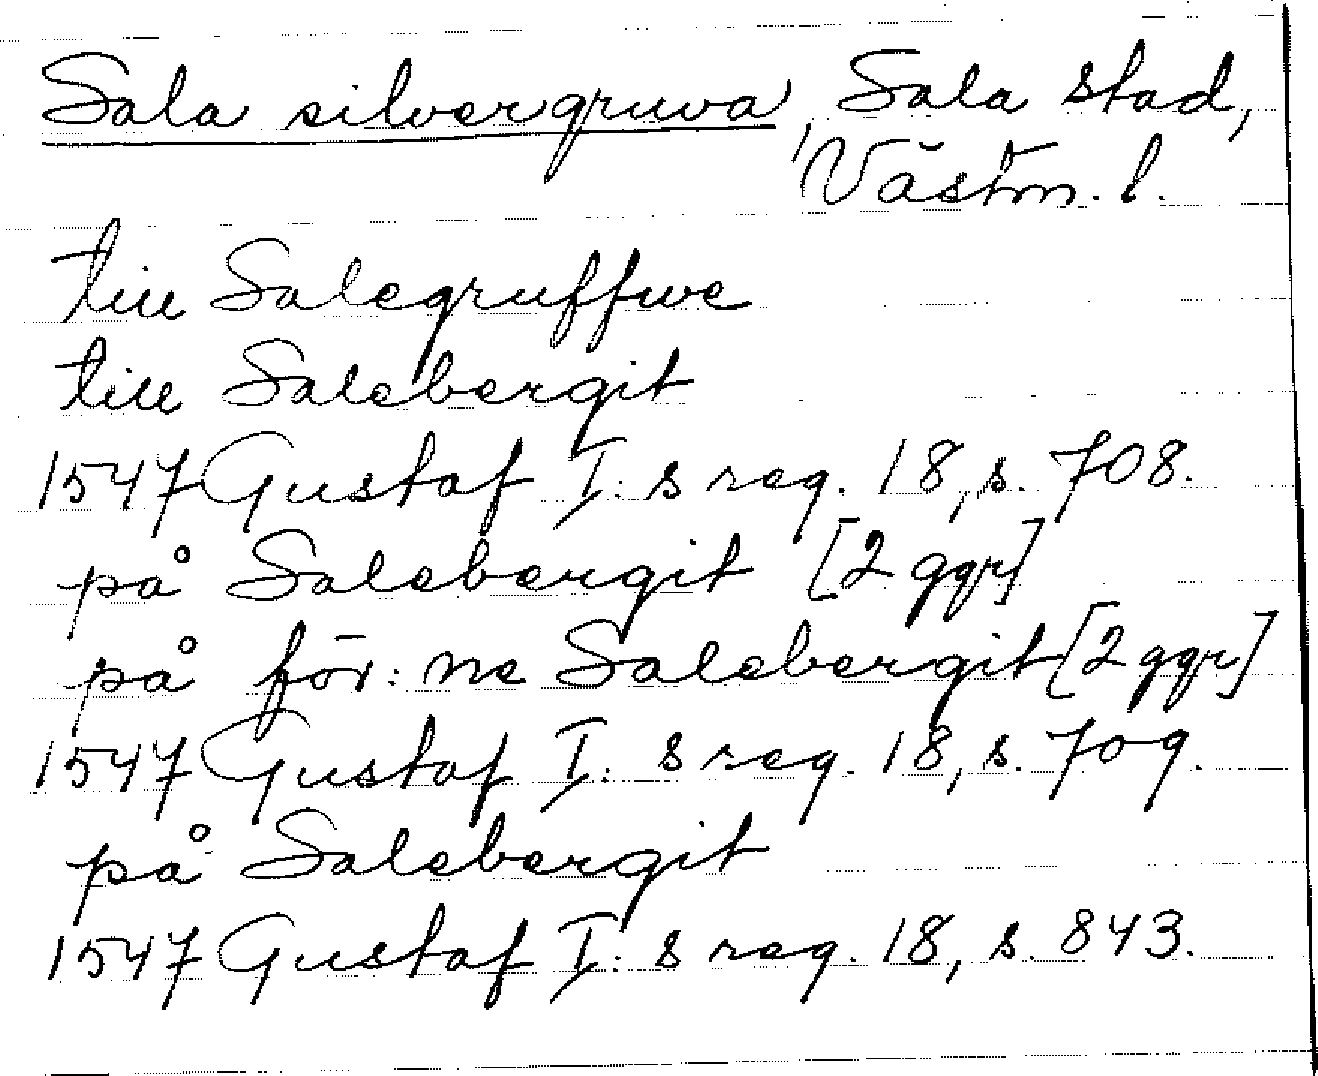 Sala silvergruva, Sala stad,
Västm. l.
till Salegruffwe
till Salebergit
1547 Gustaf I:s reg. 18, s. 708.
på Salebergit [2 ggr]
på för:ne Salebergit [2 ggr]
1547 Gustaf I:s reg. 18, s. 709.
på Salebergit
1547 Gustaf I:s reg. 18, s. 843.